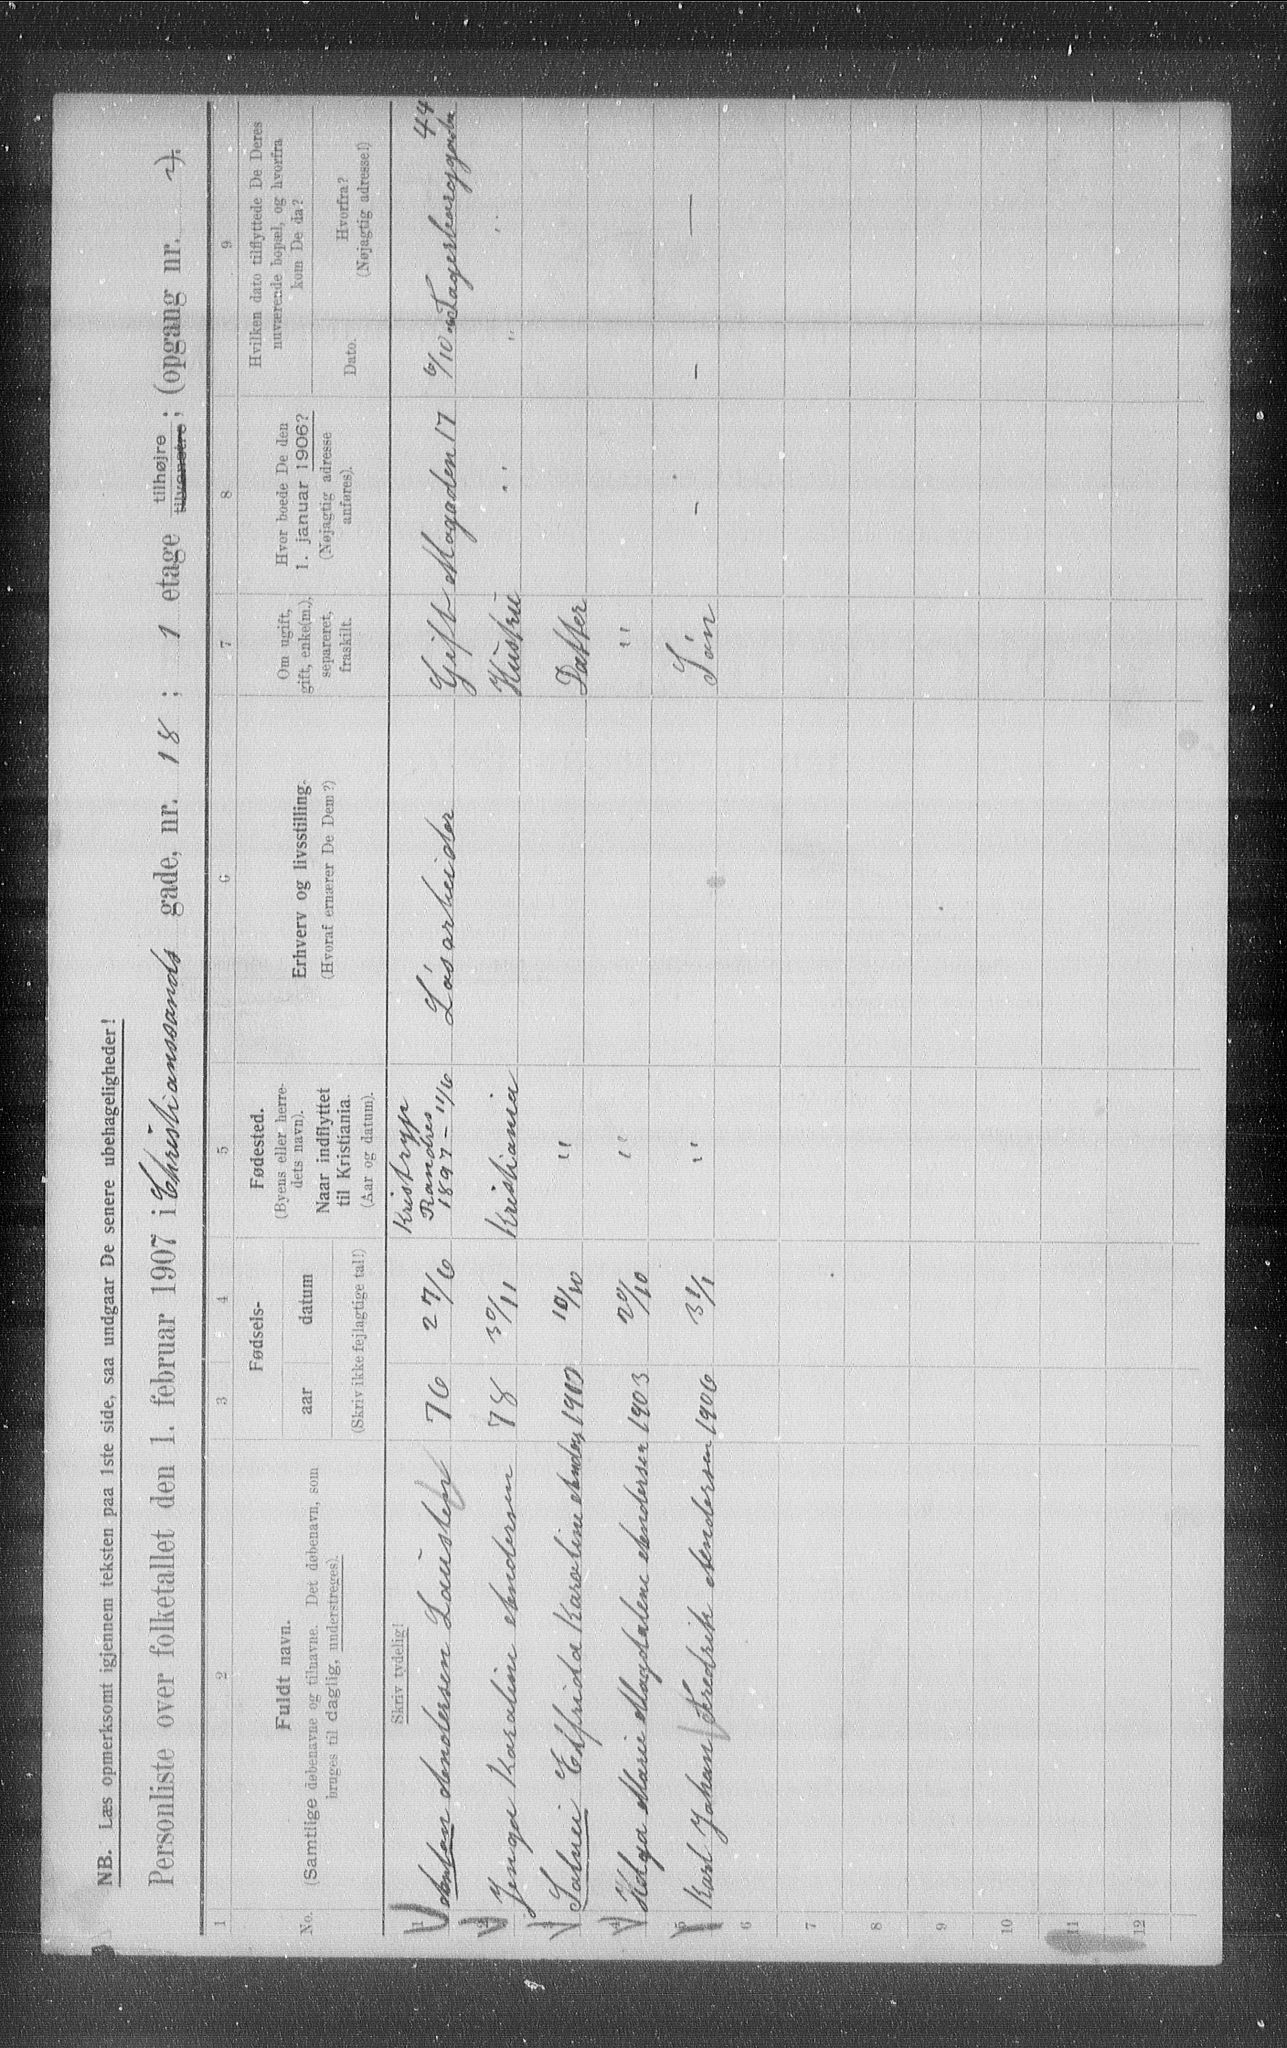 NB. Læs opmerksomt igjennem teksten paa 1ste side, saa undgaar De senere ubehageligheder!
Personliste over folketallet den 1. februar 1907 i Christianssands gade, nr. 18; 1 etage tilhøjre tilvenstre; (opgang nr. 2).
1 2 3 4 5 6 7 8 9
No.
Fuldt navn.
(Samtlige døbenavne og tilnavne. Det døbenavn, som
bruges til daglig, understreges).
Fødsels-
aar datum
(Skriv ikke fejlagtige tal!)
Fødested.
(Byens eller herre-
dets navn).
Naar indflyttet
til Kristiania.
(Aar og datum).
Erhverv og livsstilling.
(Hvoraf ernærer De Dem?)
Om ugift,
gift, enke(m.),
separeret,
fraskilt.
Hvor boede De den
1. januar 1906?
(Nøjagtig adresse
anføres).
Hvilken dato tilflyttede De Deres
nuværende bopæl, og hvorfra
kom De da?
Dato.
Hvorfra?
(Nøjagtig adresse!)
Skriv tydelig!
1 Anton Andersen 76 27/6 Randres 1897 – 11/6 Løsarbeider Gift Magaden 17 6/10 44
2 Jenga Karaline Andersen 78 30/11 Kristiania Hustru " " "
3 Solvei Elfrida Karoline 10/10 " Datter
4 Helga Marie Magdalene Andersen 1903 20/10 " "
5 Karl Johan Fredrik Andersen 1906 31/1 " Søn – – —
6
7
8
9
10
11
12